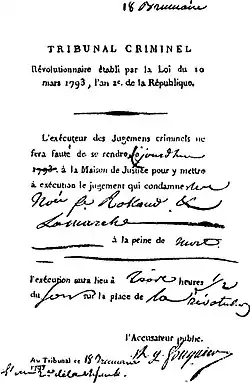 18 Brumaire
TRIBUNAL CRIMINEL
Révolutionnaire établi par la Loi du 10
mars 1793, l'an 2e. de la République.
L'exécuteur des Jugemens criminels ne
fera faute de se rendre aujourd'hui
1793. à la Maison de Justice pour y mettre
à exécution le jugement qui condamne
Rolland &
Lamarche
à la peine de mort
l'exécution aura lieu à trois heures 1/2
du jour sur la place de la révolution
l'Accusateur public.
Au Tribunal ce 18 Brumaire
1793